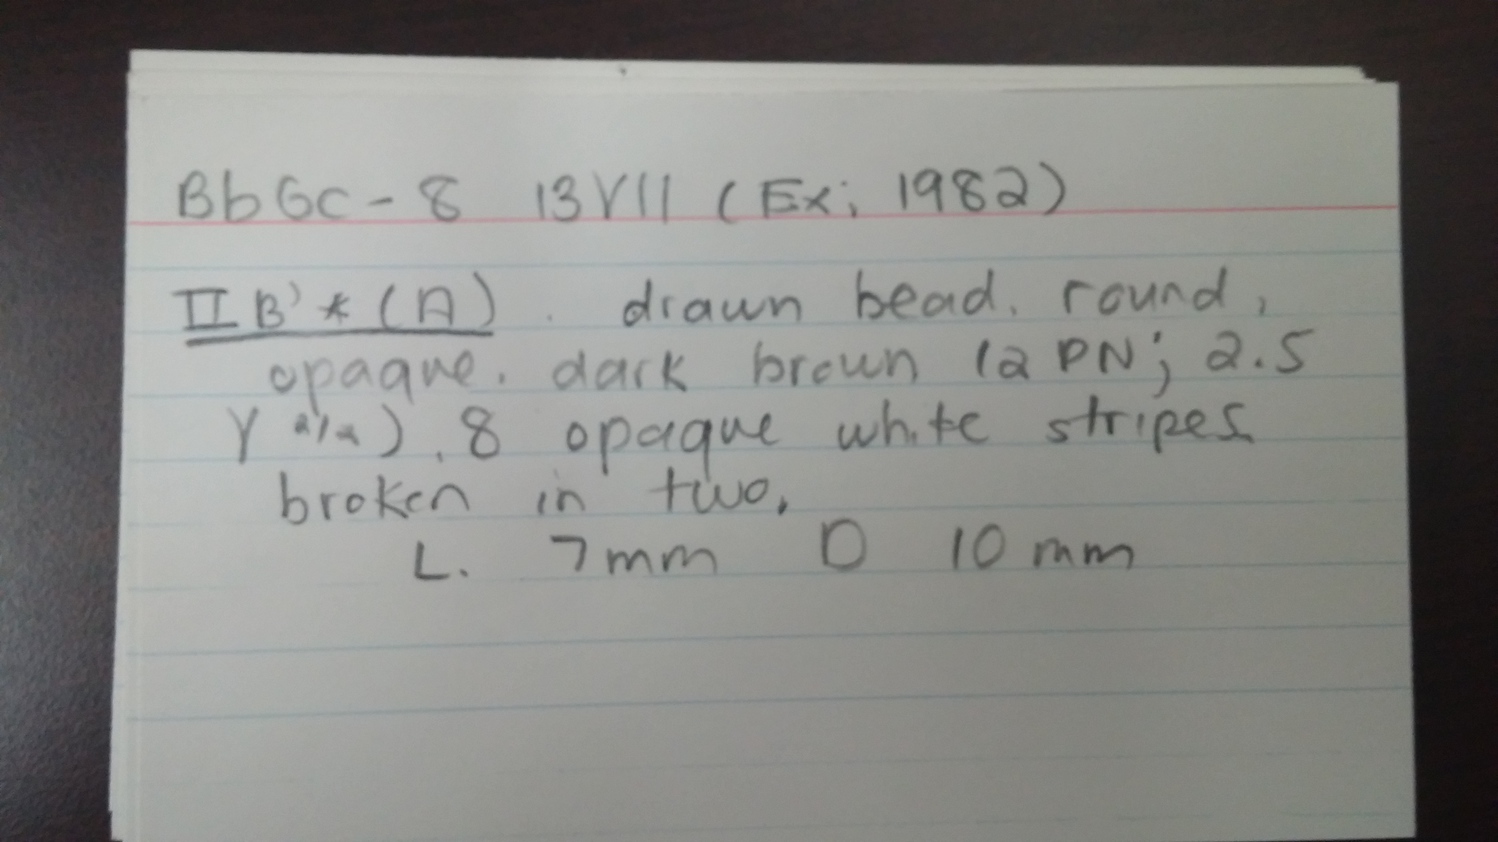 BbGc-8 13Y11 (Ex; 1982)
II B' * (A). drawn bead, round,
opaque, dark brown (2 PN; 2.5
Y 2/2), 8 opaque white stripes
broken in two,
L. 7mm D 10 mm